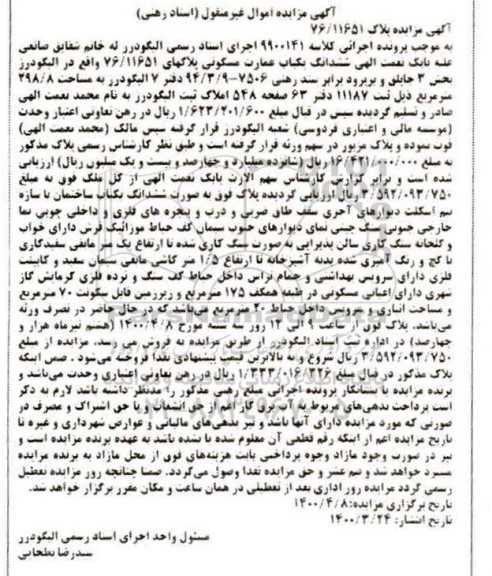 آگهی مزایده اموال غیرمنقول (اسناد رهنی)
آگهی مزایده پلاک ۷۶/۱۱۶۵۱
به موجب پرونده اجرائی کلاسه ۹۹۰۰۱۴۱ اجرای اسناد رسمی الیگودرز له خانم شقایق صانعی
علیه بابک نعمت الهی ششدانگ یکباب عمارت مسکونی پلاکهای ۷۶/۱۱۶۵۱ واقع در الیگودرز
بخش ۳ جاپلق و بربرود برابر سند رهنی ۷۵۰۶-۹۴/۳/۹ دفتر ۷ الیگودرز به مساحت ۲۹۸/۸
مترمربع ذیل ثبت ۱۱۱۸۷ دفتر ۶۳ صفحه ۵۴۸ املاک ثبت الیگودرز به نام محمد نعمت الهی
صادر و تسلیم گردیده سپس در قبال مبلغ ۱/۶۲۳/۲۰۱/۶۰۰ ریال در رهن تعاونی اعتبار وحدت
(موسسه مالی و اعتباری فردوسی) شعبه الیگودرز قرار گرفته سپس مالک (محمد نعمت الهی)
فوت نموده و پلاک مزبور در سهم ورثه قرار گرفته است و طبق نظر کارشناس رسمی پلاک مذکور
به مبلغ ۱۶/۴۲۱/۰۰۰/۰۰۰ ریال (شانزده میلیارد و چهارصد و بیست و یک میلیون ریال) ارزیابی
شده است و برابر گزارش کارشناس سهم الارث بابک نعمت الهی از کل ملک فوق به مبلغ
۳/۵۹۲/۰۹۳/۷۵۰ ریال ارزیابی گردیده پلاک فوق به صورت ششدانگ یکباب ساختمان با سازه
نیم اسکلت دیوارهای آجری سقف طاق ضربی و درب و پنجره های فلزی و داخلی چوبی نما
خارجی جنوبی سنگ چینی نمای دیوارهای جنوب سیمان کف حیاط موزائیک فرش دارای خواب
و گلخانه سنگ کاری سالن پذیرایی به صورت سنگ کاری شده تا ارتفاع یک متر مابقی سفیدکاری
با گچ و رنگ آمیزی شده بدنه آشپزخانه تا ارتفاع ۱/۵ متر کاشی مابقی سیمان سفید و کابینت
فلزی دارای سرویس بهداشتی و حمام تراس داخل حیاط کف سنگ و نرده فلزی گرمایش گاز
شهری دارای اعیانی مسکونی در طبقه همکف ۱۷۵ مترمربع و زیرزمین قابل سکونت ۷۰ مترمربع
و مساحت انباری و سرویس داخل حیاط ۲۰ مترمربع می‌باشد که درحال حاضر در تصرف ورثه
می‌باشد. پلاک فوق از ساعت ۹ الی ۱۲ روز سه شنبه مورخ ۱۴۰۰/۴/۸ (هشتم تیرماه هزار و
چهارصد) در اداره ثبت اسناد الیگودرز از طریق مزایده به فروش می رسد. مزایده از مبلغ
۳/۵۹۲/۰۹۳/۷۵۰ ریال شروع و به بالاترین قیمت پیشنهادی نقدا فروخته می‌شود. ضمن اینکه
پلاک مذکور در قبال مبلغ ۱/۳۳۳/۰۱۶/۳۲۶ ریال در رهن تعاونی اعتباری وحدت می‌باشد و
برنده مزایده یا بستانکار پرونده اجرائی مبلغ رهنی مذکور را مدنظر داشته باشد لازم به ذکر
است پرداخت بدهی‌های مربوط به آب، برق گاز اعم از حق انشعاب و یا حق اشتراک و مصرف در
صورتی که مورد مزایده دارای آنها باشد و نیز بدهی‌های مالیاتی و عوارض شهرداری و غیره تا
تاریخ مزایده اعم از اینکه رقم قطعی آن معلوم شده یا نشده باشد به عهده برنده مزایده است و
نیز در صورت وجود مازاد وجوه پرداختی بابت هزینه‌های فوق از محل مازاد به برنده مزایده
مسترد خواهد شد و نیم عشر و حق مزایده نقدا وصول می‌گردد. ضمنا چنانچه روز مزایده تعطیل
رسمی گردد مزایده روز اداری بعد از تعطیلی در همان ساعت و مکان مقرر برگزار خواهد شد.
تاریخ برگزاری مزایده: ۱۴۰۰/۴/۸
تاریخ انتشار: ۱۴۰۰/۳/۲۴
مسئول واحد اجرای اسناد رسمی الیگودرز
سیدرضا بطحایی